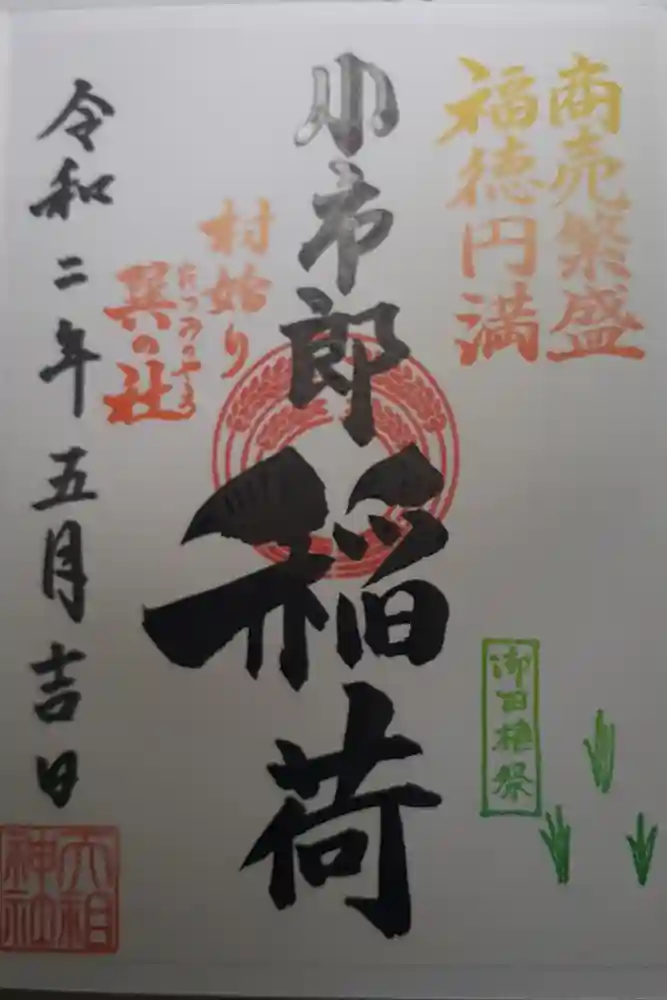 商売繁盛
福徳円満
小市郎稲荷
村始り
巽の社
たつみのやしろ
令和二年五月吉日
御田植祭
大相
神社